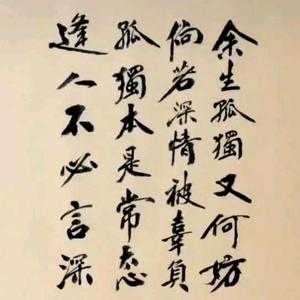 余生孤獨又何妨
倘若深情被辜負
孤獨本是常态
逢人不必言深